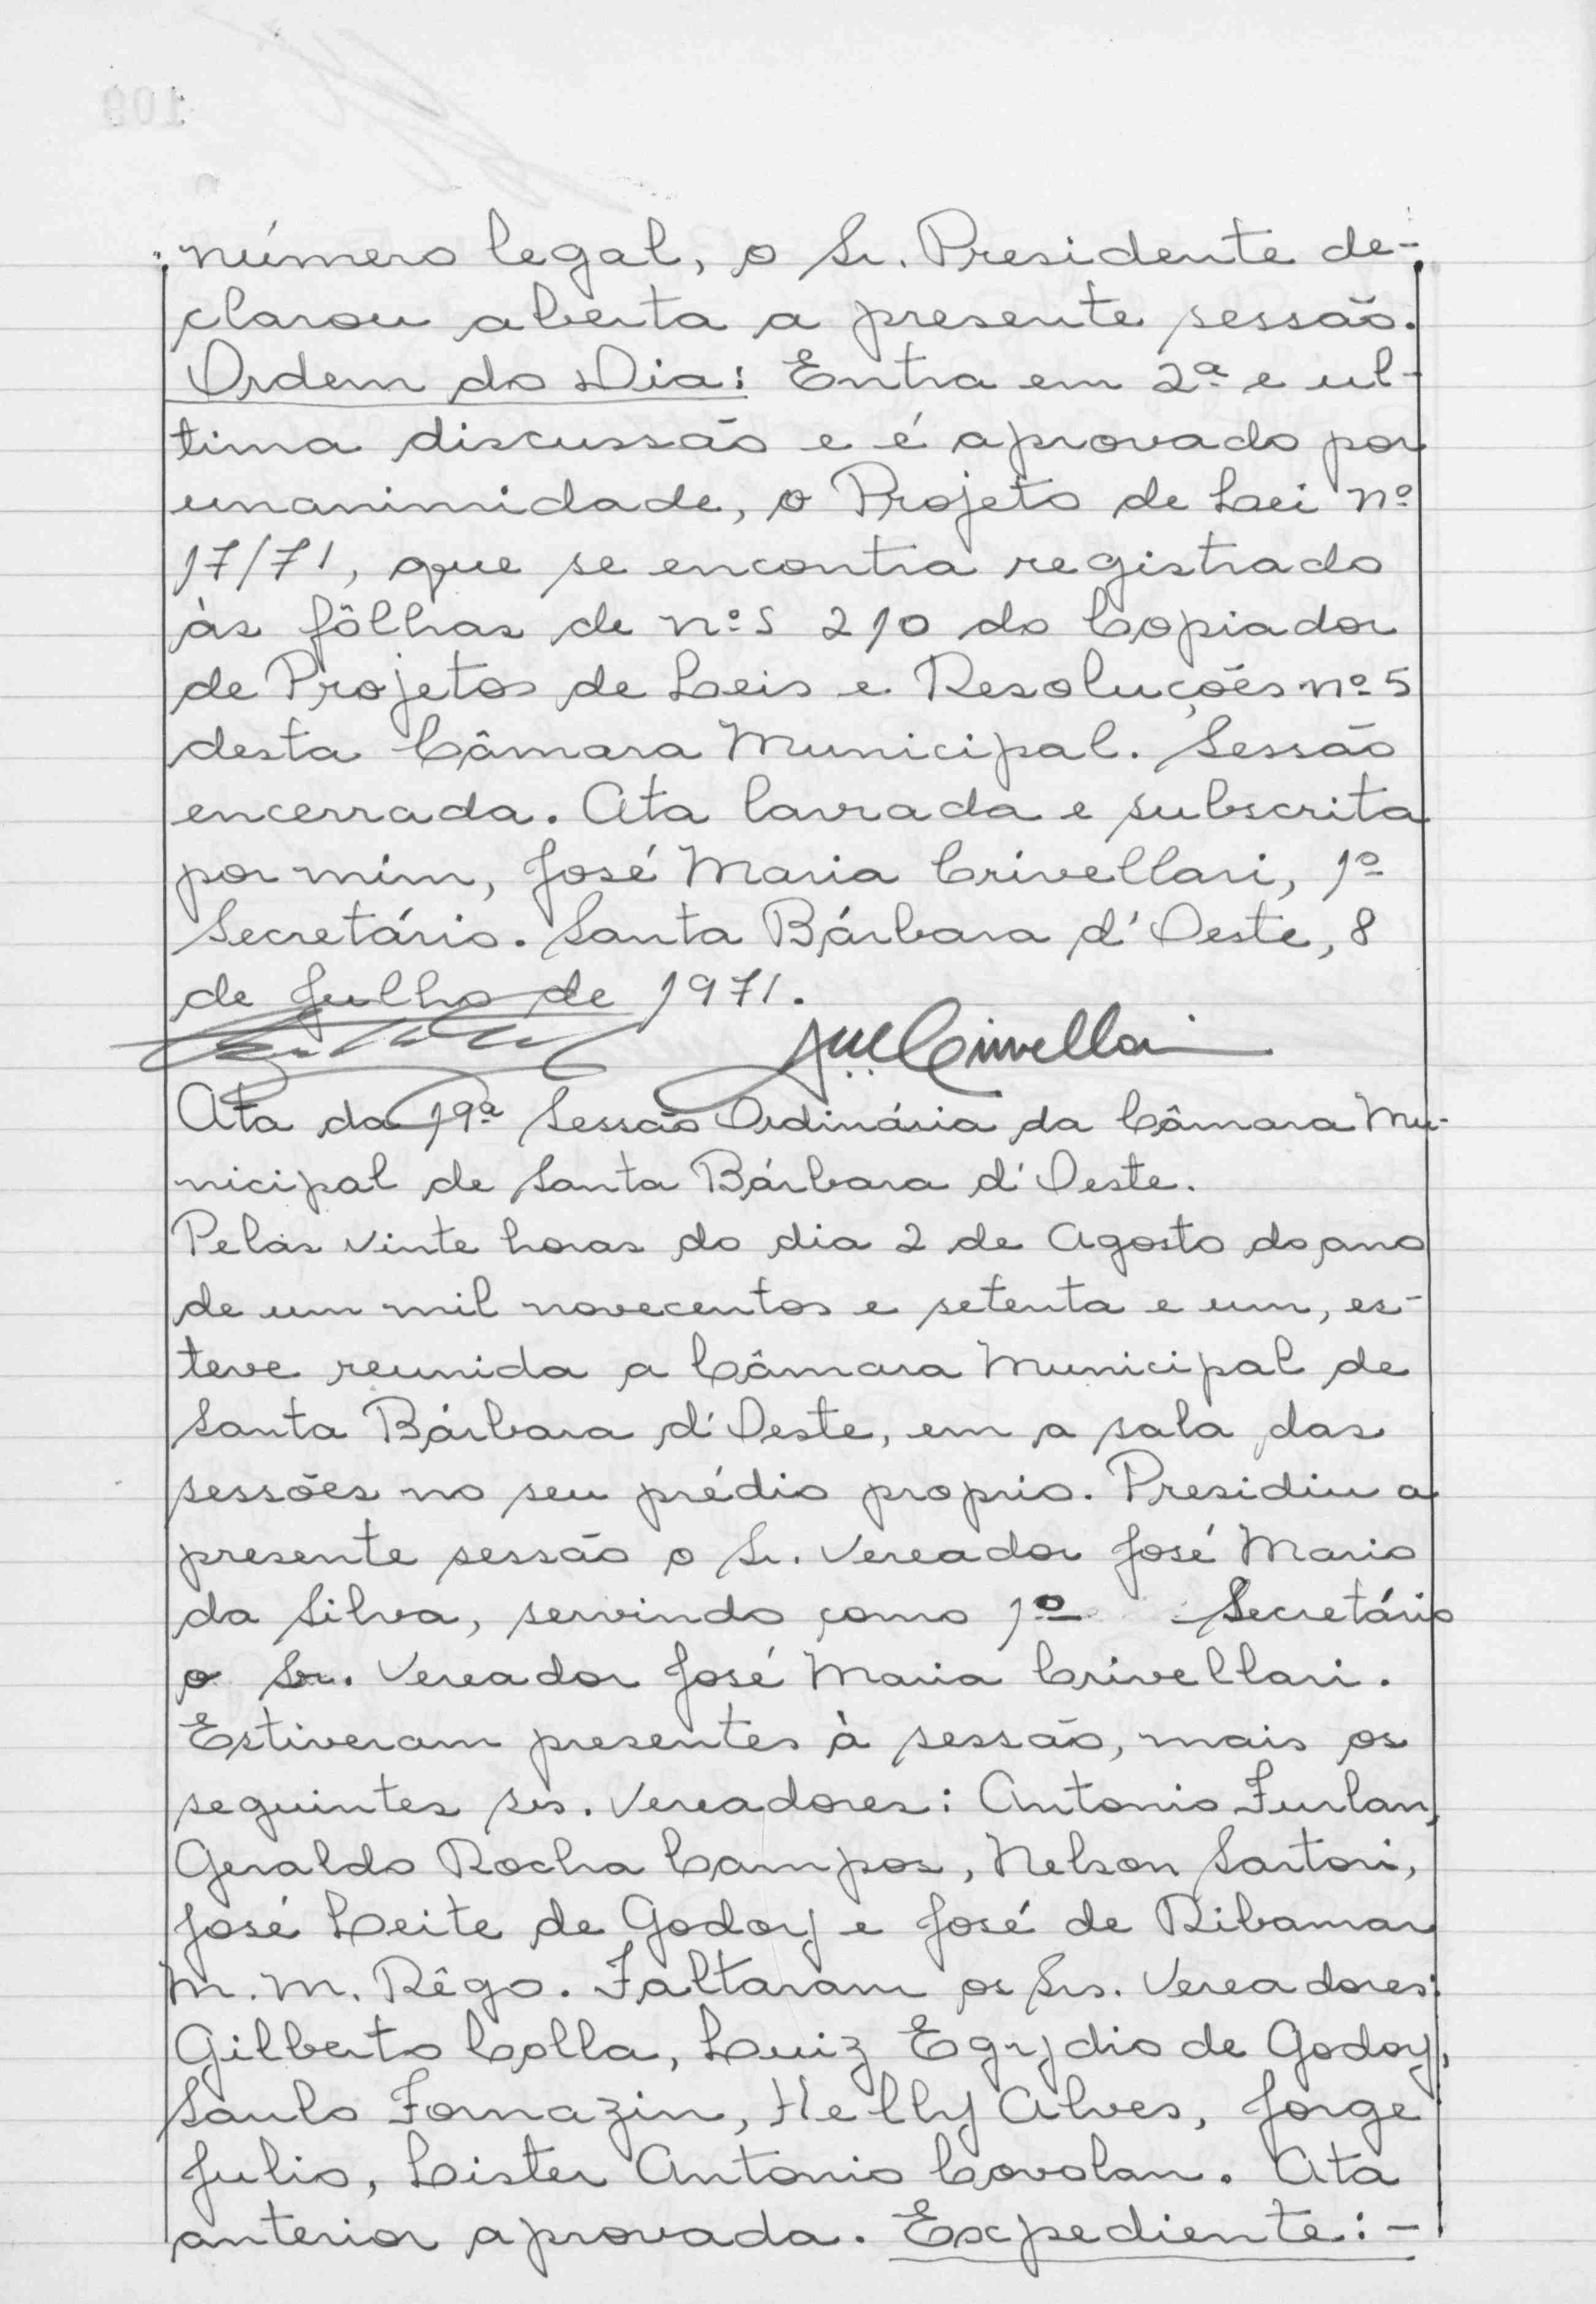 número legal, o Sr. Presidente de-
clarou aberta a presente sessão.
Ordem do Dia: Entra em 2ª e ul-
tima discussão e é aprovado por
unanimidade, o Projeto de Lei nº
17/71, que se encontra registrado
às fôlhas de nº s 210 do Copiador
de Projetos de Leis e Resoluções nº 5
desta Câmara Municipal. Sessão
encerrada. Ata lavrada e subscrita
por mim, José Maria Crivellari, 1º
Secretário. Santa Bárbara d'Oeste, 8
de Julho de 1971.
Crivellari
Ata da 19ª Sessão Ordinária da Câmara Mu-
nicipal de Santa Bárbara d'Oeste.
Pelas vinte horas do dia 2 de Agosto do ano
de um mil novecentos e setenta e um, es-
teve reunida a Câmara Municipal de
Santa Bárbara d'Oeste, em a sala das
sessões no seu prédio proprio. Presidiu a
presente sessão o Sr. Vereador José Mario
da Silva, servindo como 1º Secretário
o Sr. Vereador José Maria Crivellari.
Estiveram presentes à sessão, mais os
seguintes srs. Vereadores: Antonio Furlan,
Geraldo Rocha Campos, Nelson Sartori,
José Leite de Godoy e José de Ribamar
M. M. Rêgo. Faltaram os Srs. Vereadores:
Gilberto Colla, Luiz Egydio de Godoy,
Saulo Fornazin, Helly Alves, Jorge
Julio, Lister Antonio Covolan. Ata
anterior aprovada. Expediente:-